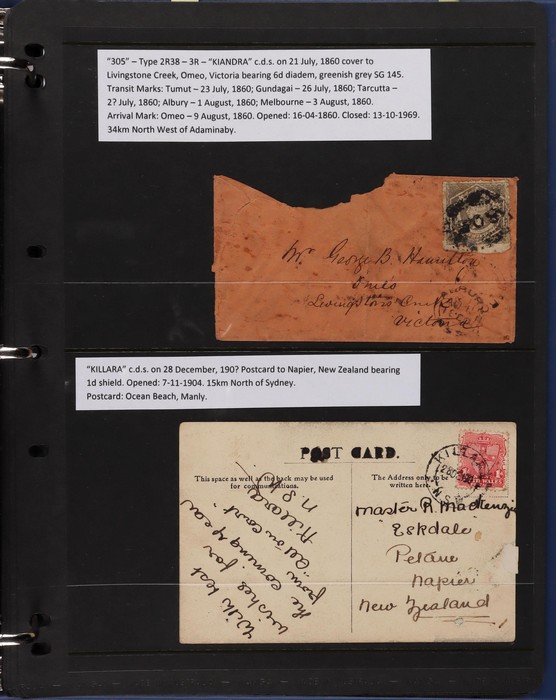 "305" – Type 2R3B – 3R – "KIANDRA" c.d.s. on 21 July, 1860 cover to
Livingstone Creek, Omeo, Victoria bearing 6d diadem, greenish grey SG 145.
Transit Marks: Tumut – 23 July, 1860; Gundagai – 26 July, 1860; Tarcutta –
2? July, 1860; Albury – 1 August, 1860; Melbourne – 3 August, 1860.
Arrival Mark: Omeo – 9 August, 1860. Opened: 16-04-1860. Closed: 13-10-1969.
34km North West of Adaminaby.
Mr George B. Hamilton
Livingstone Creek
Victoria
"KILLARA" c.d.s. on 28 December, 190? Postcard to Napier, New Zealand bearing
1d shield. Opened: 7-11-1904. 15km North of Sydney.
Postcard: Ocean Beach, Manly.
POST CARD.
This space as well as the back may be used
for communications.
The Address only to be
written here.
KILLARA
With best
wishes for
the coming year
from
all on coast
Killara
N.S.W.
Master R. MacKenzie
Eskdale
Petane
Napier
New Zealand